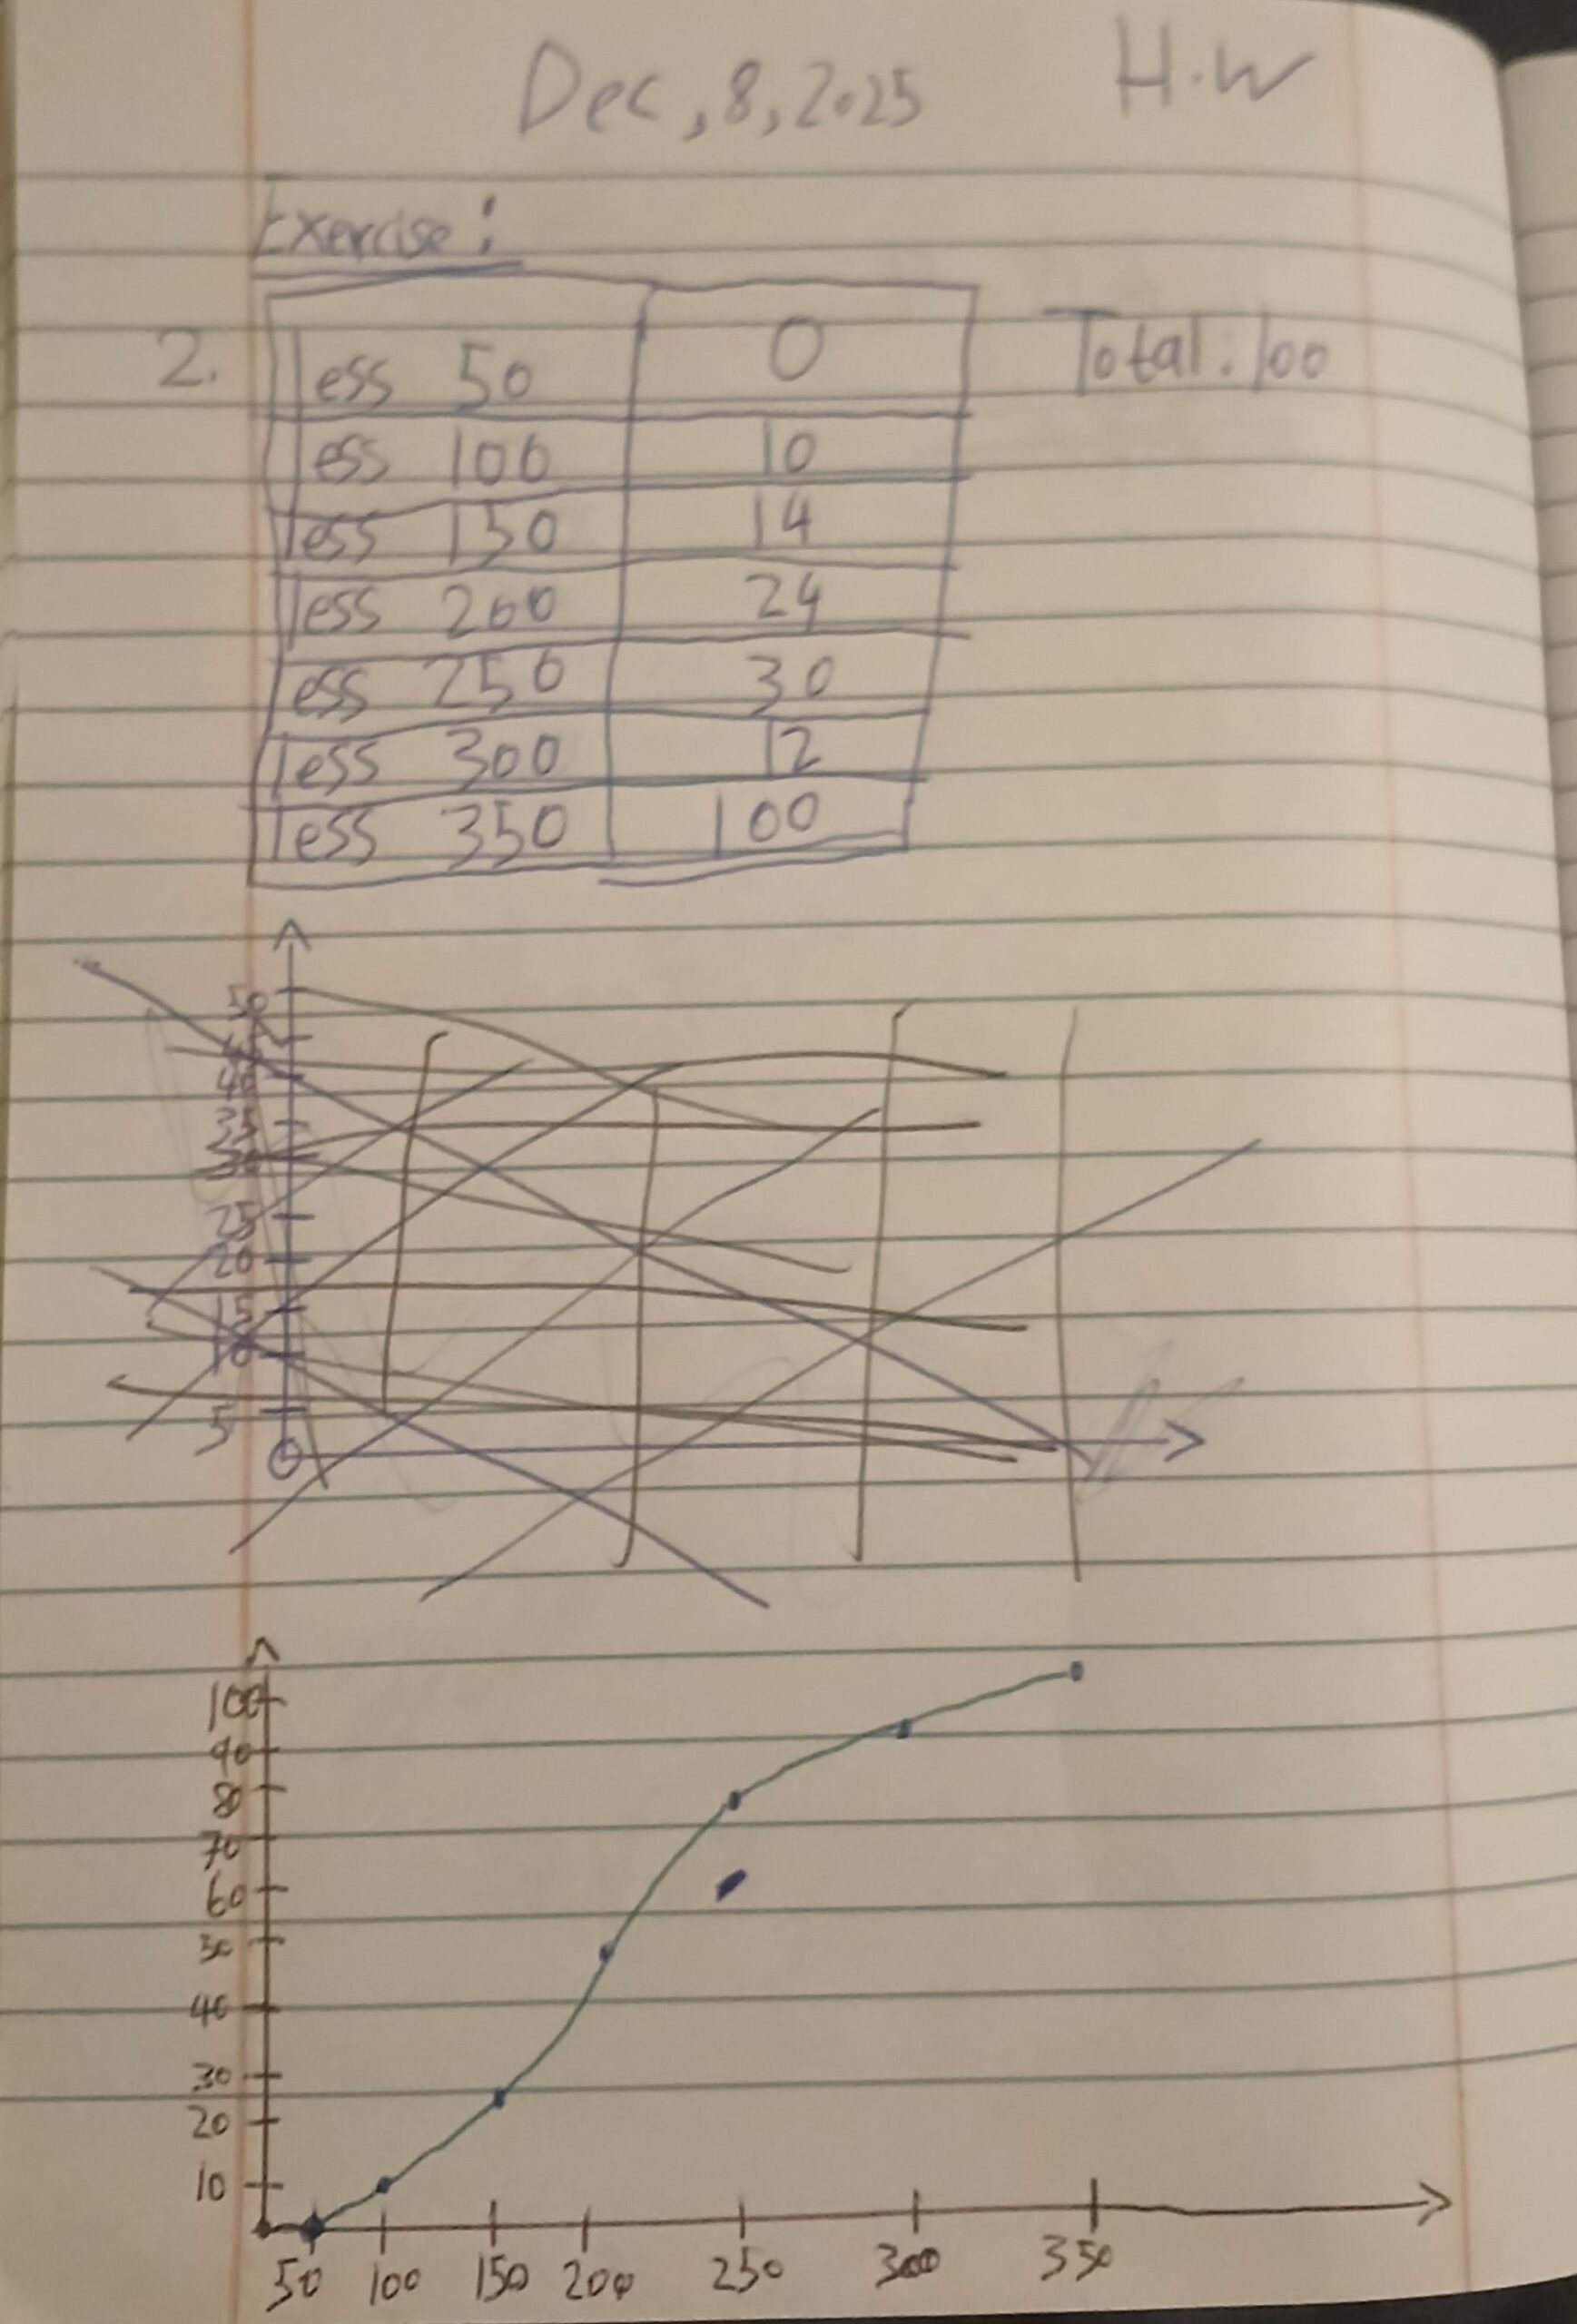 Dec, 8, 2025 H.W
Exercise:
2.
less 50 0 Total: 100
less 100 10
less 150 14
less 200 24
less 250 30
less 300 12
less 350 100
50
45
40
35
30
25
20
15
10
5
100
90
80
70
60
50
40
30
20
10
50 100 150 200 250 300 350